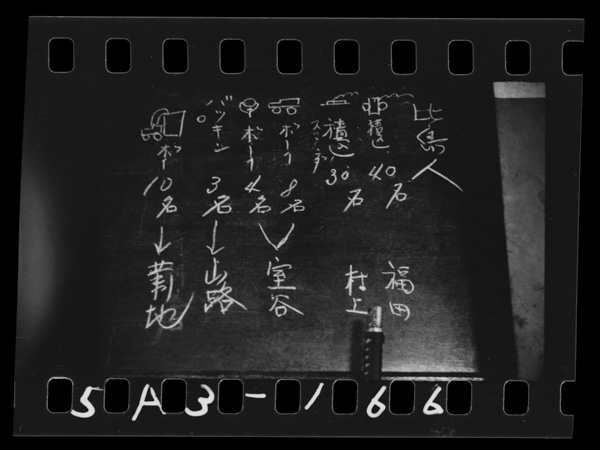 比島人
積込 40名 福田
積込 30名 村上
ボーイ 8名
ボーイ 4名 室谷
パッキン 3名 山路
ボーイ 10名 菊地
5A3-166